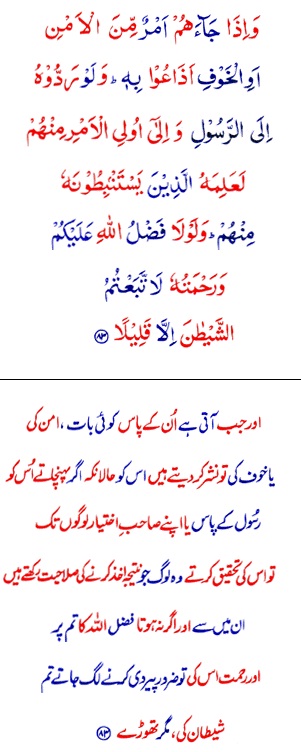 وَاِذَا جَآءَهُمْ اَمْرٌ مِّنَ الْاَمْنِ
اَوِالْخَوْفِ اَذَاعُوْا بِهٖ ؕ وَلَوْ رَدُّوْهُ
اِلَى الرَّسُوْلِ وَ اِلٰٓى اُولِى الْاَمْرِ مِنْهُمْ
لَعَلِمَهُ الَّذِيْنَ يَسْتَنْۢبِطُوْنَهٗ
مِنْهُمْ ؕ وَلَوْلَا فَضْلُ اللّٰهِ عَلَيْكُمْ
وَرَحْمَتُهٗ لَا تَّبَعْتُمُ
الشَّيْطٰنَ اِلَّا قَلِيْلًا ﴿۸۳﴾
اور جب آتی ہے اُن کے پاس کوئی بات ، امن کی
یا خوف کی تو نشر کردیتے ہیں اس کو حالانکہ اگر پہنچاتے اُس کو
رسُول کے پاس یا اپنے صاحبِ اختیار لوگوں تک
تو اس کی تحقیق کرتے وہ لوگ جو نتیجہ اخذ کرنے کی صلاحیت رکھتے ہیں
ان میں سے اور اگر نہ ہوتا فضل اللہ کا تم پر
اور رحمت اس کی تو ضرور پیروی کرنے لگ جاتے تم
شیطان کی، مگر تھوڑے ﴿۸۳﴾